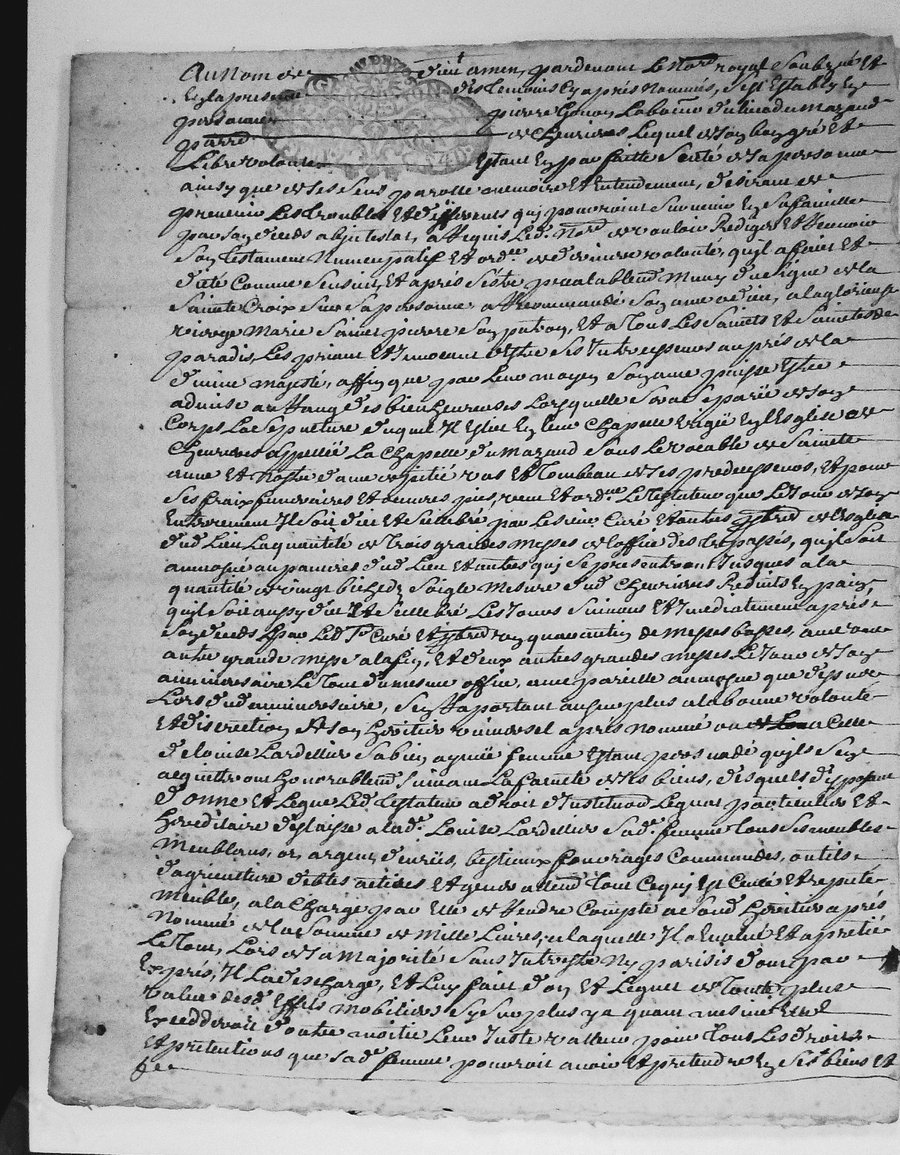 Au Nom de dieu amen, pardevant le nore royal soubzné et
En la presence des temoins cy apres nommés, s'est estably en
personne pierre laboureur du lieu du mazaud
parre de cheurieres Lequel de son bon gré et
Libre volonté Estant en parfaitte santé de sa personne
ainsy que de ses sens parolle memoire et entendement, desirant de
prevenir les troubles et differents quj pouroint survenir en sa famille
par son deceds abjntestat, a requis led. nore de vouloir rediger et recevoir
son testament nuncupatif et ordre de derniere volonté, qu'jl a fait et
dicté comme sensuit, et après s'estre prealablemt muny du signe de la
sainte croix sur sa personne a recommandé son ame a dieu, a la glorieuse
vierge marie saint pierre son patron, et a tous les saints et saintes de
paradis, les priant et jnvocant d'estre ses jntercesseurs auprés de la
divine majesté, affin que par leur moyen son ame puisse estre
admise au rang des bien heureuses lorsquelle sera separée de son
corps la sepulture duquel jl eslit en leur chapelle erigée en l'esglise de
cheurieres appellée la chapelle du mazaud sous le vocable de sainte
anne et nostre dame de pitié vas et tombeau de ses predecesseurs, et pour
ses fraix funeraires et œuvres pies, veut et ordne le testateur que le jour de son
enterrement jl soit dit et celebré par les sieur curé et autres pbres de l'esglise
dud. lieu la quantité de trois grandes messes de l'office des trepassés, qu'jl soit
aumosné aux pauvres dud. lieu et autres quj se presenteront jusques a la
quantité de vingt bicheds soigle mesure dud. cheurieres reduits en pain
qu'jl soit aussy dit et cellebré les jours suivans et jmediatement après
son deceds par led. sr curé et pbres un quarantin de messes basses, avec une
autre grande messe a la fin, et deux autres grandes messes le jour de son
anniversaire le tout du mesme office, avec pareille aumosne que dessus
lors dud. anniversaire, s'en raportant au surplus a la bonne volonté
et discrection de son heritier universel après nommé ou a celle
de louise lardellier sa bien aymée femme estant persuadé qu'jls s'en
acquitteront honnorablemt suivant la faculté de ses biens, desquels disposant
donne et legue led. testateur a droit d'jnstitution legat particulier et
hereditaire delaisse a lad. louise lardellier sad. femme tous ses meubles
meublans, or, argent, denrées, bestiaux, ouvrages commandés, outils
d'agriculture debtes actives et generallemt tout ce quj est censé et reputé
meubles, a la charge par elle de rendre compte a sond. heritier après
nommé de la somme de mille livres, a laquelle jl a evalué et apretié
le tout, lors de sa majorité sans jnterests ny parisis dont par
exprés, jl la descharge, et luy fait don et legat de toute plus
value desd. effets mobiliers s'y surplus y a quand mesme elle
excedderoit d'outre moitié leur juste valleur pour tous les droits
et pretentions que sad. femme pouroit avoir et pretendre en ses biens et